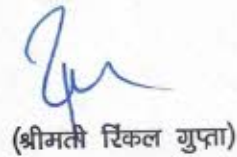 (श्रीमती रिंकल गुप्ता)